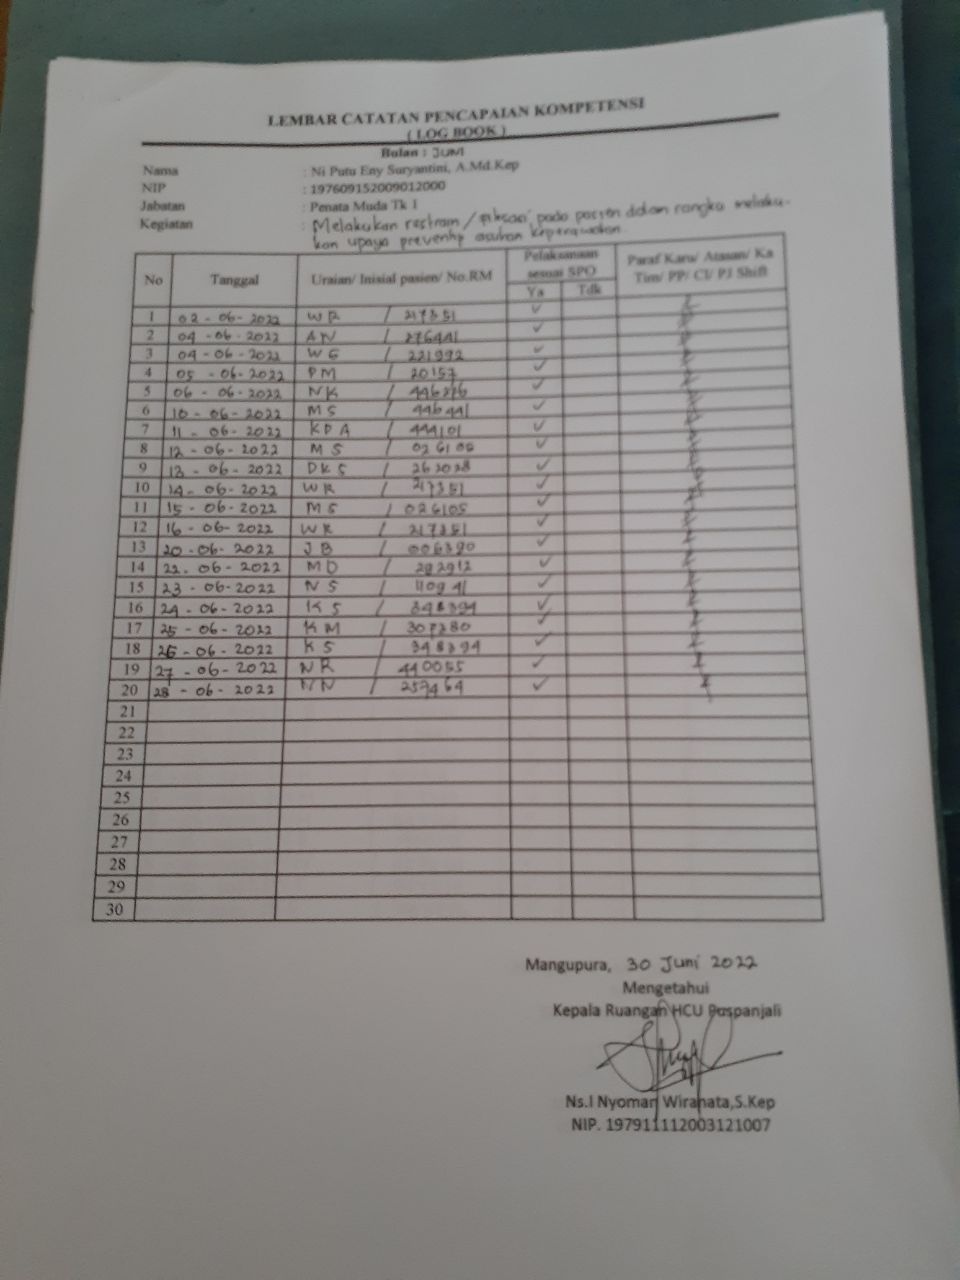 LEMBAR CATATAN PENCAPAIAN KOMPETENSI
( LOG BOOK )
Bulan : JUNI
Nama : Ni Putu Eny Suryantini, A.Md.Kep
NIP : 197609152009012000
Jabatan : Penata Muda Tk 1
Kegiatan : Melakukan restrain / fiksasi pada pasien dalam rangka melaku-
kan upaya preventip asuhan keperawatan.
No Tanggal Uraian/ Inisial pasien/ No.RM Pelaksanaan sesuai SPO Ya Tdk Paraf Karu/ Atasan/ Ka Tim/ PP/ CI/ PJ Shift
1 02 - 06 - 2022 WR / 217351 ✓
2 04 - 06 - 2022 AN / 276441 ✓
3 04 - 06 - 2022 WS / 221992 ✓
4 05 - 06 - 2022 PM / 20157 ✓
5 06 - 06 - 2022 NK / ✓
6 10 - 06 - 2022 MS / 446441 ✓
7 11 - 06 - 2022 KDA / 444101 ✓
8 12 - 06 - 2022 MS / ✓
9 13 - 06 - 2022 DKS / 262028 ✓
10 14 - 06 - 2022 WR / 217351 ✓
11 15 - 06 - 2022 MS / 026105 ✓
12 16 - 06 - 2022 WR / 217351 ✓
13 20 - 06 - 2022 JB / 006390 ✓
14 22 - 06 - 2022 MD / 292912 ✓
15 23 - 06 - 2022 NS / 110941 ✓
16 24 - 06 - 2022 KS / 348394 ✓
17 25 - 06 - 2022 KM / 307380 ✓
18 26 - 06 - 2022 KS / 348394 ✓
19 27 - 06 - 2022 NR / 440055 ✓
20 28 - 06 - 2022 NN / 257464 ✓
21
22
23
24
25
26
27
28
29
30
Mangupura, 30 Juni 2022
Mengetahui
Kepala Ruangan HCU Puspanjali
Ns.I Nyoman Wiranata,S.Kep
NIP. 197911112003121007